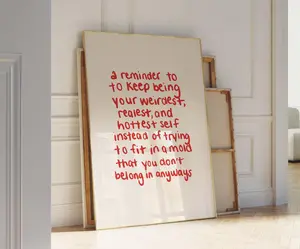 a reminder to
to keep being
your weirdest,
realest, and
hottest self
instead of trying
to fit in a mold
that you don't
belong in anyways